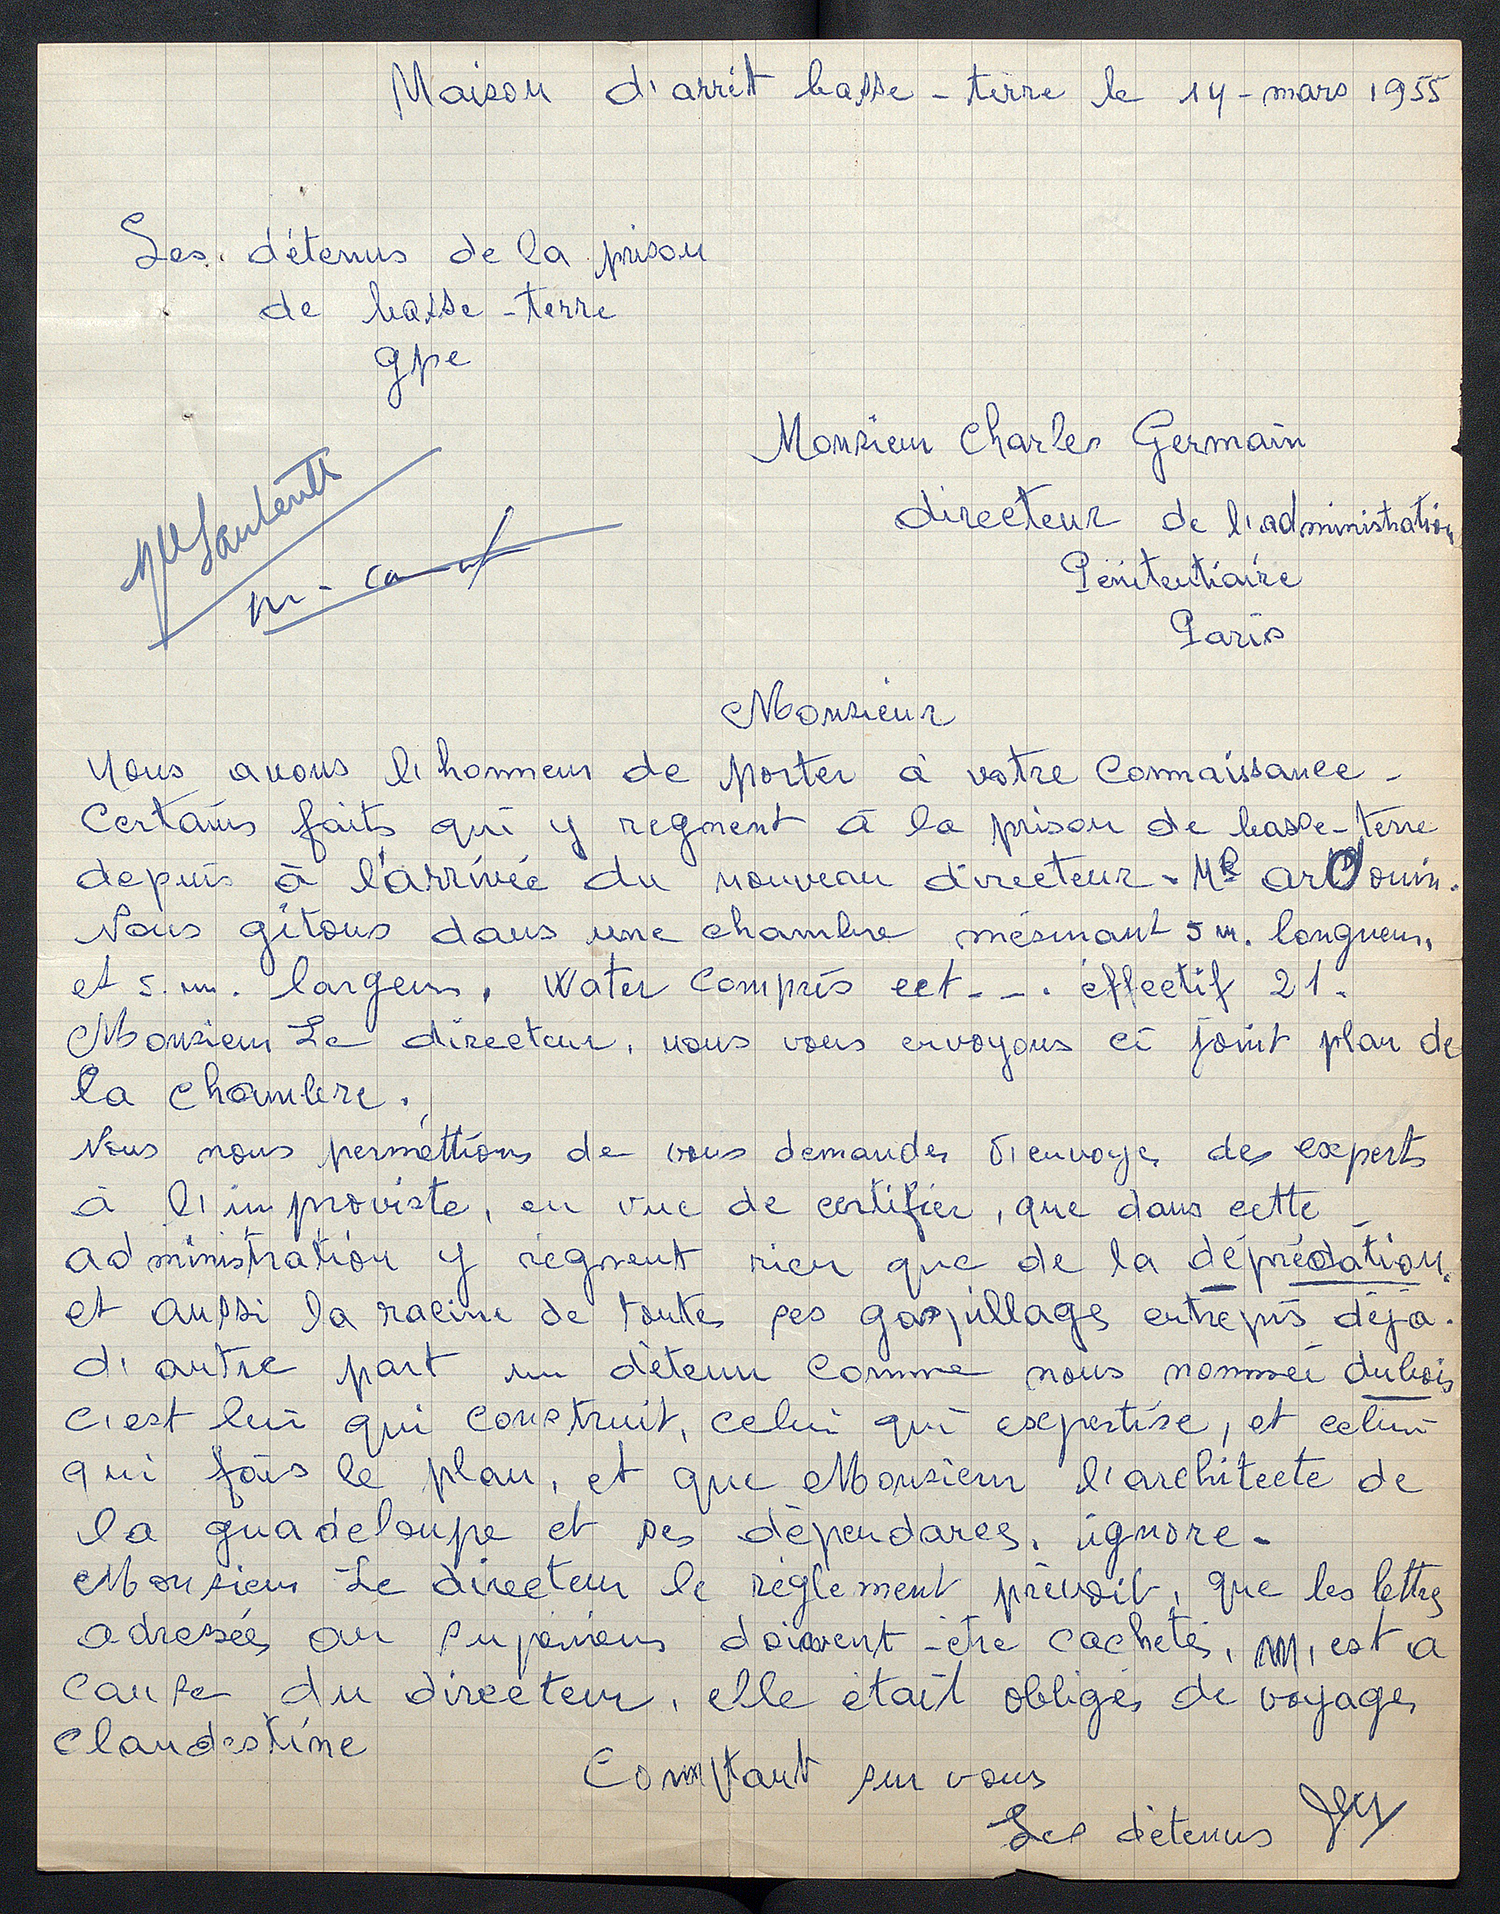 Maison d'arrêt basse-terre le 14-mars 1955
Les détenus de la prison
de basse-terre
Gpe
Monsieur Charles Germain
directeur de l'administration
Pénitentiaire
Paris
Mlle
Monsieur
Nous avons l'honneur de porter à votre connaissance -
Certains faits qui y regnent à la prison de basse-terre
depuis à l'arrivée du nouveau directeur. Mr ardouin.
Nous gîtons dans une chambre mésurant 5 m. longueur,
et 5. m. largeur, Water compris ect--. éffectif 21.
Monsieur Le directeur, nous vous envoyons ci joint plan de
la chambre.
Nous nous perméttions de vous demander d'envoyer des experts
à l'improviste, en vue de certifier, que dans cette
administration y règnent rien que de la déprédation.
et aussi la racine de toutes ses gaspillages entrepris déjà.
d'autre part un détenu comme nous nommée dubois
c'est lui qui construit, celui qui expertise, et celui
qui fais le plan, et que Monsieur l'architecte de
la guadeloupe et ses dépendances, ignore.
Monsieur Le directeur le règlement prévoit, que les lettres
adressées au supérieurs doivent être cachetés, est a
cause du directeur, elle était obligés de voyager
clandestine
Comptant sur vous
Les détenus